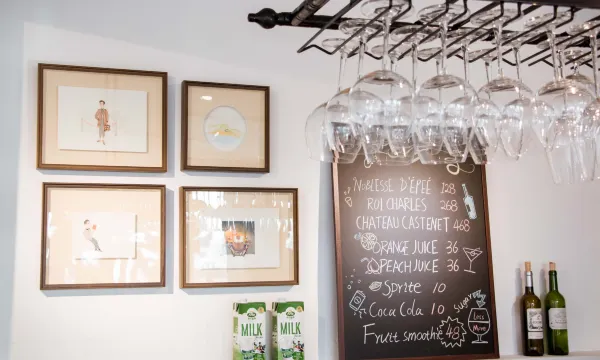 NOBLESSE D'ÉPÉÉ 128
ROI CHARLES 268
CHATEAU CASTENET 468
ORANGE JUICE 36
PEACH JUICE 36
SPRITE 10
COCA COLA 10
FRUIT SMOOTHIE 48
Sugar
Less
More
MILK
MILK